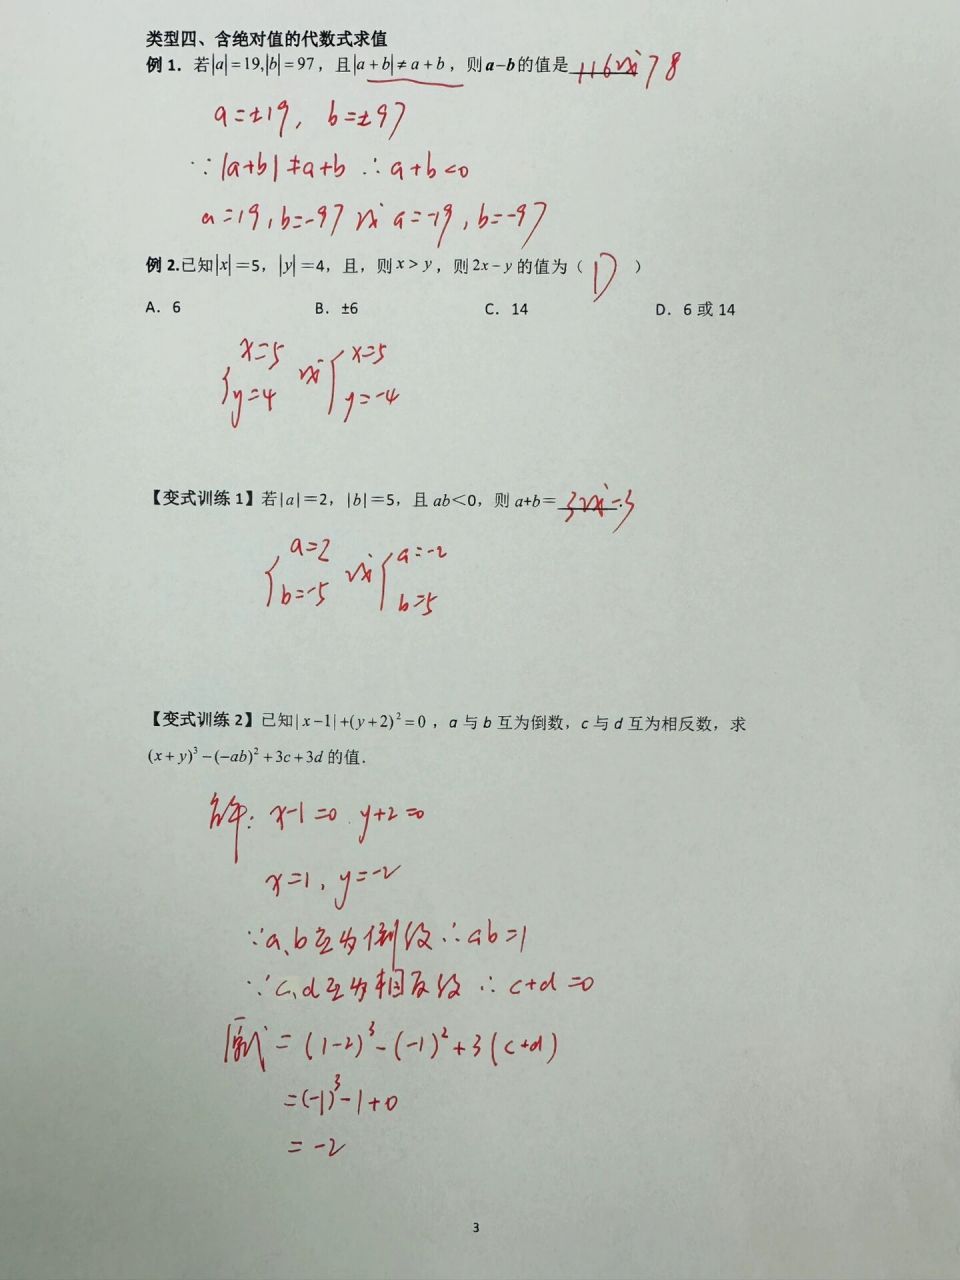 类型四、含绝对值的代数式求值
例 1．若|a|=19,|b|=97，且|a+b|≠a+b，则a−b的值是 116或78
a=±19, b=±97
∵|a+b|≠a+b ∴a+b<0
a=19,b=-97 或 a=-19,b=-97
例 2.已知|x|=5，|y|=4，且，则x>y，则2x−y的值为（ D ）
A．6 B．±6 C．14 D．6 或 14
{x=5 y=4 或 {x=5 y=-4
【变式训练 1】若|a|=2，|b|=5，且 ab<0，则 a+b= 3或-3.
{a=2 b=-5 或 {a=-2 b=5
【变式训练 2】已知|x−1|+(y+2)²=0，a 与 b 互为倒数，c 与 d 互为相反数，求
(x+y)³−(−ab)²+3c+3d 的值．
解: x-1=0 y+2=0
x=1, y=-2
∵a、b互为倒数∴ab=1
∵c、d互为相反数∴c+d=0
原式=(1-2)³-(-1)²+3(c+d)
=(-1)³-1+0
=-2
3